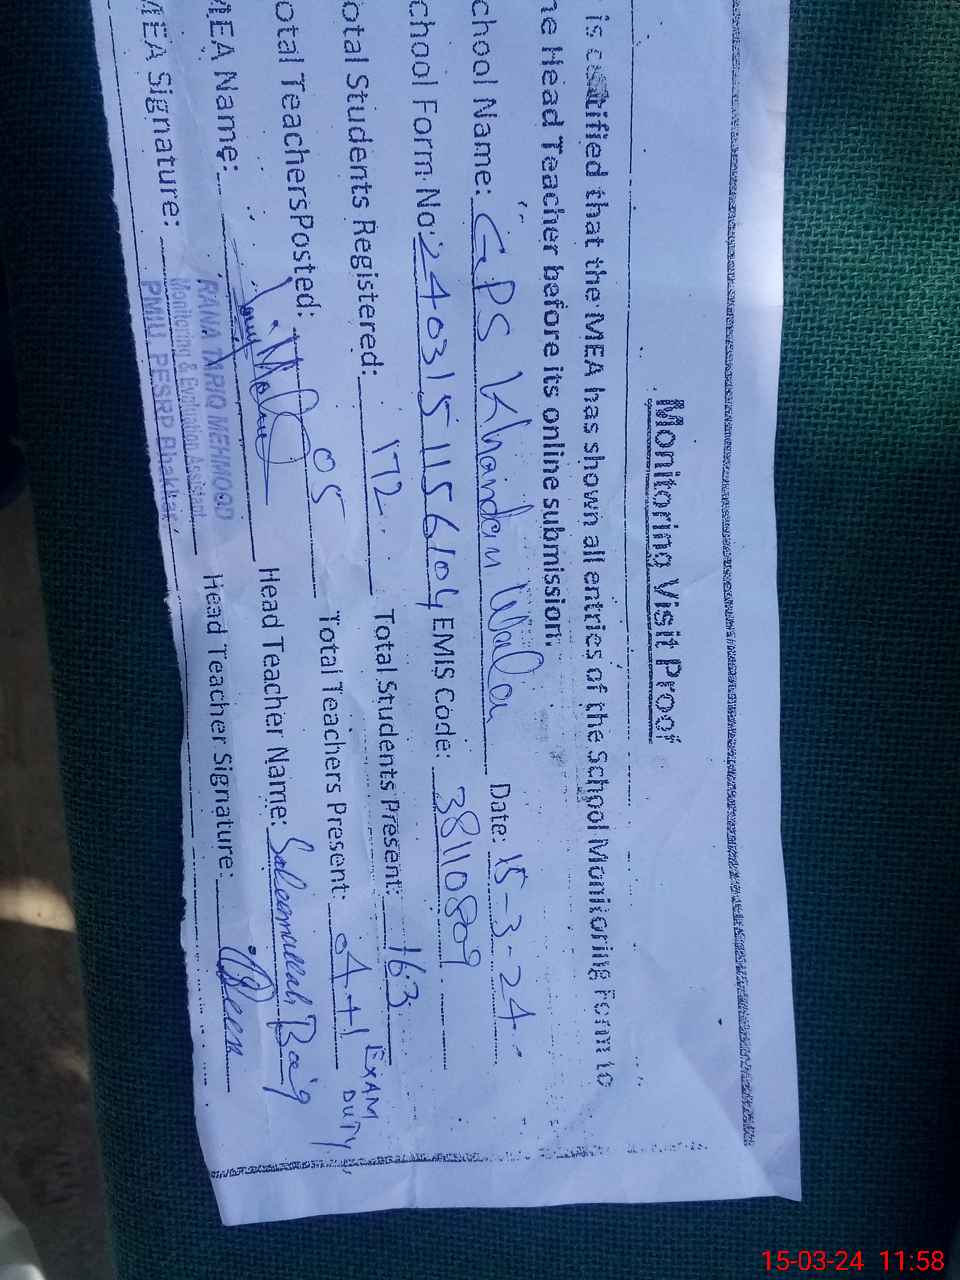 Monitoring Visit Proof
is certified that the MEA has shown all entries of the School Monitoring Form to
he Head Teacher before its online submission.
chool Name: GPS Khairdan Wala Date: 15-3-24
chool Form No: 2403151156104 EMIS Code: 38110809
otal Students Registered: 172 Total Students Present: 163
otal TeachersPosted: 05 Total Teachers Present: 04+1 EXAM DUTY
MEA Name: Head Teacher Name: Saleemullah Baig
RANA TARIQ MEHMOOD
Monitoring & Evaluation Assistant
PMIU PESRP Bhakkar
MEA Signature: Head Teacher Signature:
15-03-24 11:58